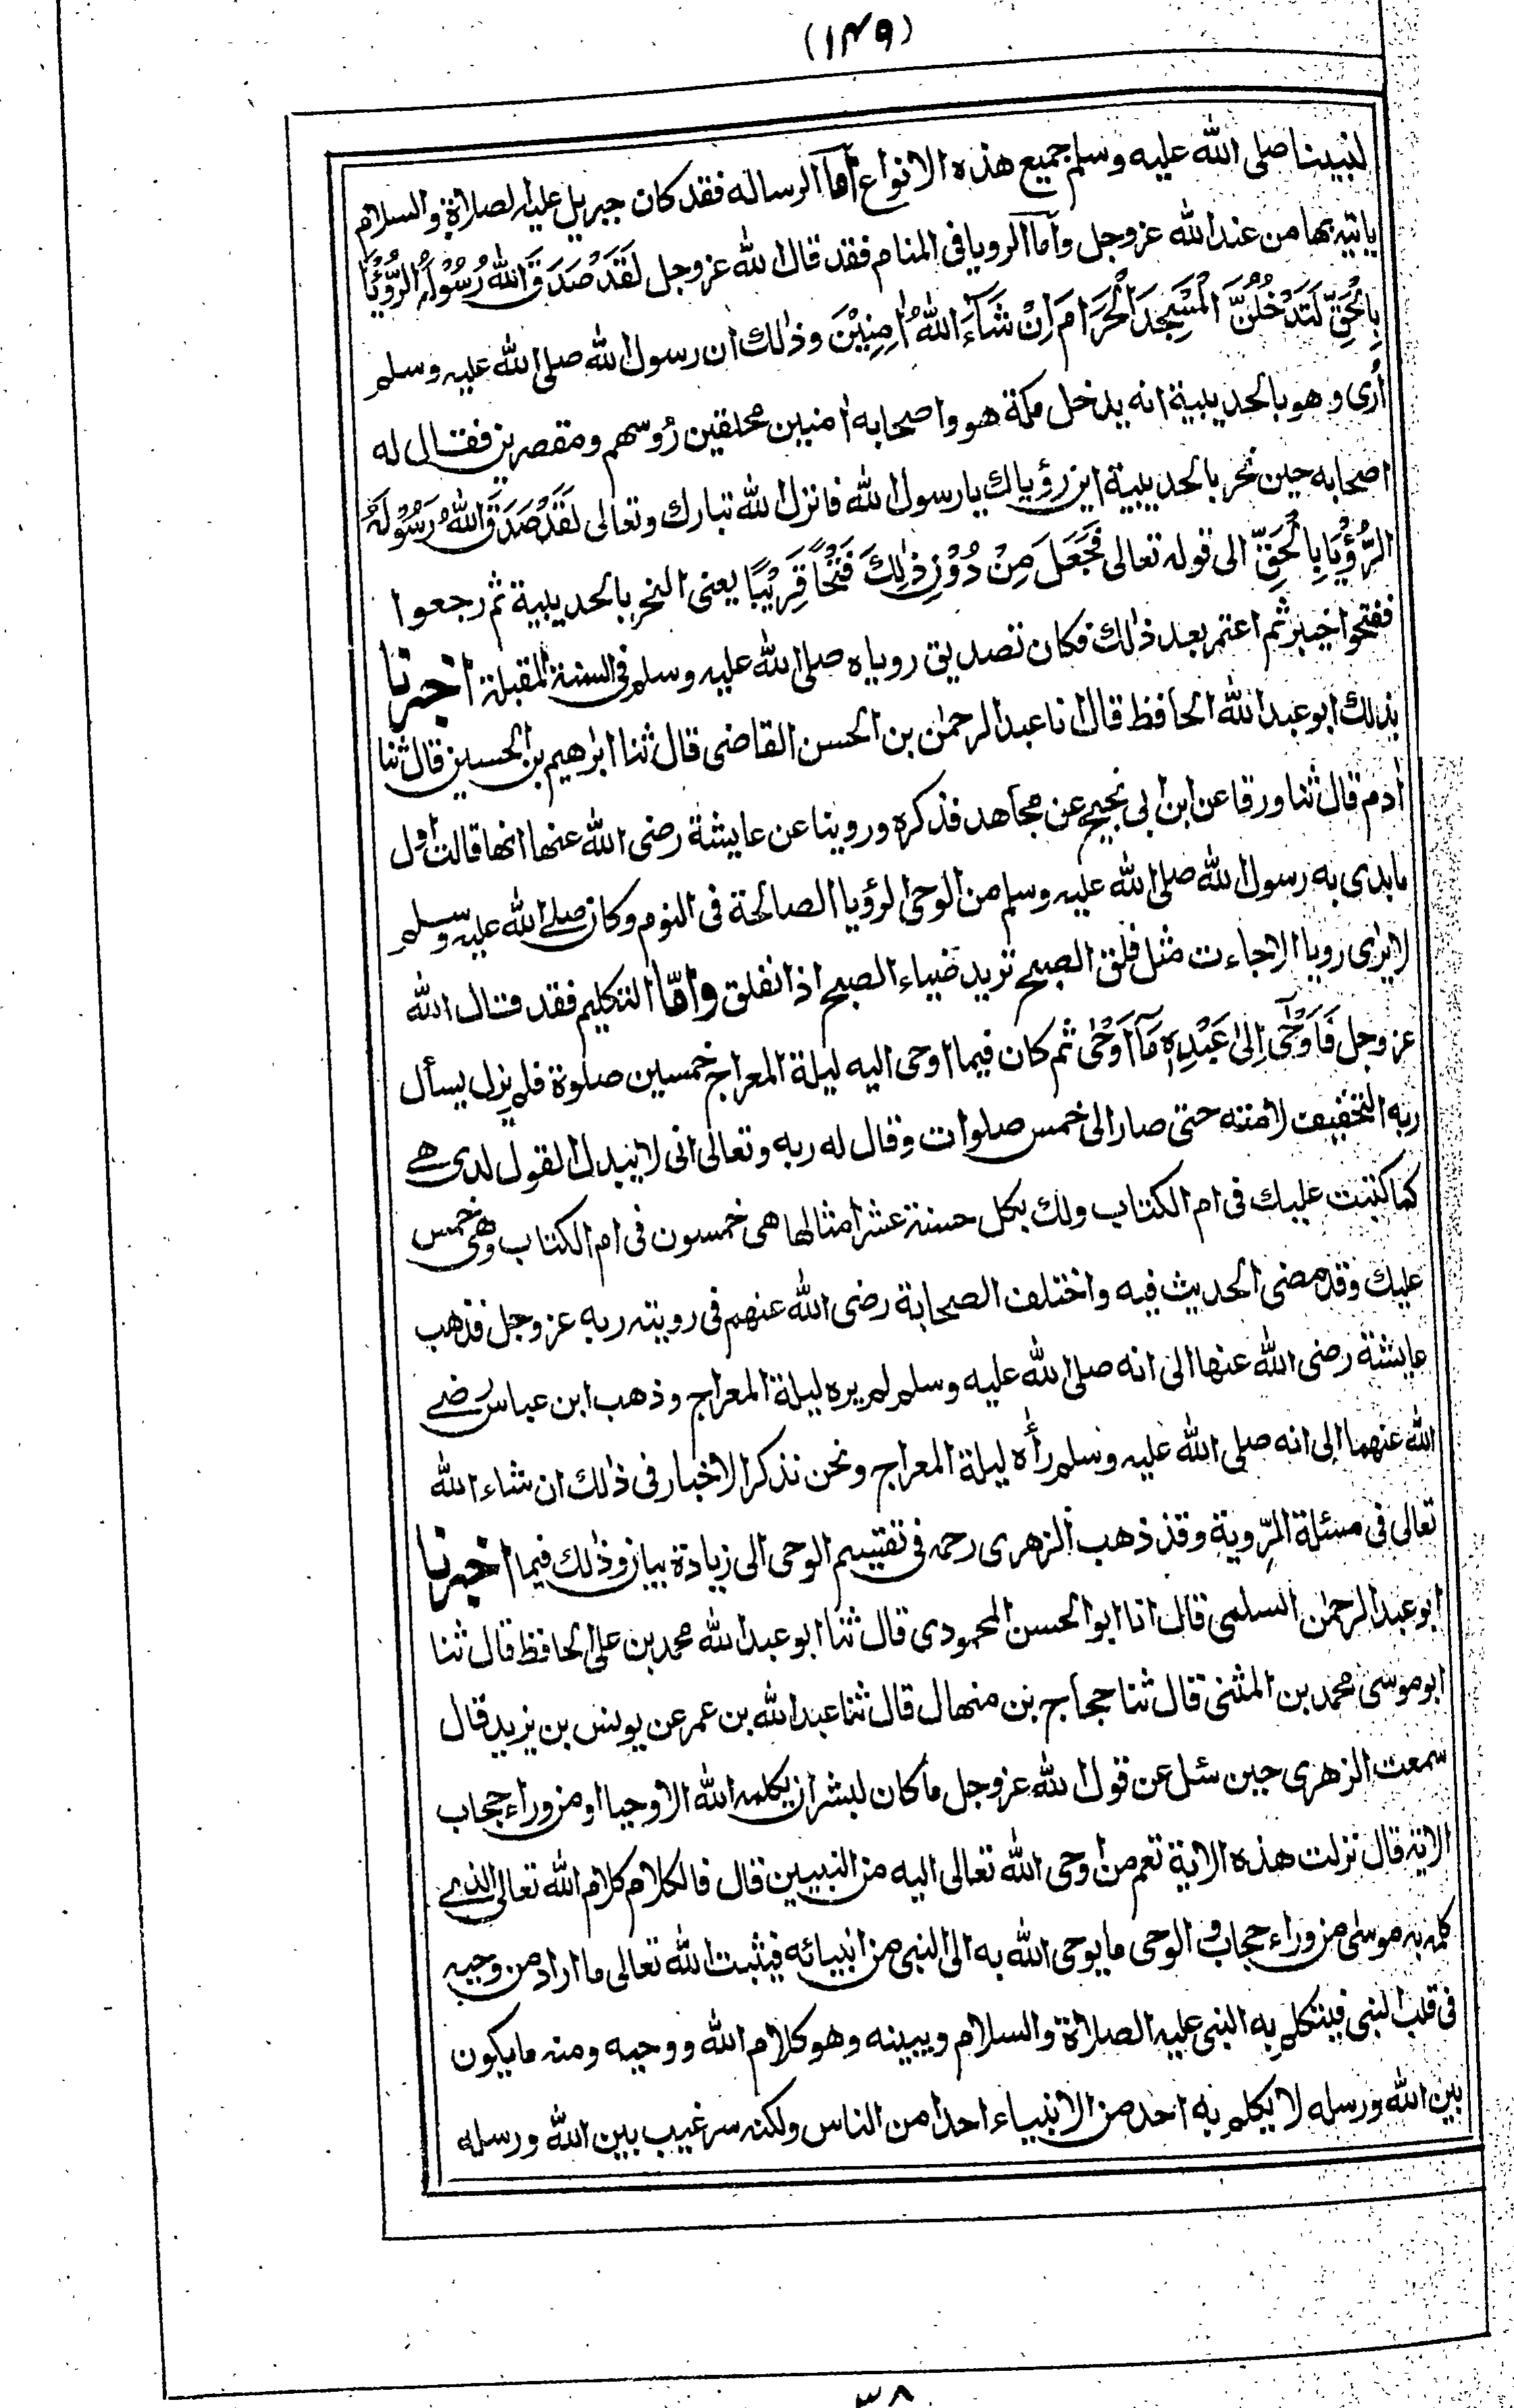 (١٤٩)
لنبينا صلى الله عليه وسلم جميع هذه الانواع أما الرساله فقد كان جبريل عليه الصلاة والسلام
ياتيه بها من عند الله عزوجل وأما الرويا فى المنام فقد قال الله عزوجل لَقَدْ صَدَقَ اللهُ رَسُوْلَهُ الرُّؤْيَا
بِالْحَقِّ لَتَدْخُلُنَّ الْمَسْجِدَ الْحَرَامَ اِنْ شَآءَ اللهُ اٰمِنِيْنَ وذٰلك ان رسول الله صلى الله عليه وسلم
اُرى وهو بالحديبية انه يدخل مكة هو واصحابه اٰمنين محلقين رؤسهم ومقصرين فقال له
اصحابه حين نحر بالحديبية اين رؤياك يا رسول الله فانزل الله تبارك وتعالى لَقَدْ صَدَقَ اللهُ رَسُوْلَهُ
الرُّؤْيَا بِالْحَقِّ الى قوله تعالى فَجَعَلَ مِنْ دُوْنِ ذٰلِكَ فَتْحًا قَرِيْبًا يعنى النحر بالحديبية ثم رجعوا
ففتحوا خيبر ثم اعتمر بعد ذالك فكان تصديق روياه صلى الله عليه وسلم فى السنة المقبلة اخبرنا
بذلك ابو عبد الله الحافظ قال انا عبد الرحمٰن بن الحسن القاضى قال ثنا ابرهيم بن الحسين قال ثنا
اٰدم قال ثنا ورقا عن ابن ابى نجيح عن مجاهد فذكره وروينا عن عايشة رضى الله عنها انها قالت اول
ما بدى به رسول الله صلى الله عليه وسلم من الوحى الرؤيا الصالحة فى النوم وكان صلى الله عليه وسلم
لا يرى رويا الا جاءت مثل فلق الصبح تريد ضياء الصبح اذا انفلق وامّا التكليم فقد قال الله
عزوجل فَاَوْحٰٓى اِلٰى عَبْدِهٖ مَآ اَوْحٰى ثم كان فيما اوحى اليه ليلة المعراج خمسين صلوة فلم يزل يسأل
ربه التخفيف لامته حتى صار الى خمس صلوات وقال له ربه وتعالى انى لا يبدل القول لدى هى
كما كتبت عليك فى ام الكتاب ولك بكل حسنة عشر امثالها هى خمسون فى ام الكتاب وهى خمس
عليك وقد مضى الحديث فيه واختلف الصحابة رضى الله عنهم فى رويته ربه عزوجل فذهب
عايشة رضى الله عنها الى انه صلى الله عليه وسلم لم يره ليلة المعراج وذهب ابن عباس رضى
الله عنهما إلى انه صلى الله عليه وسلم رأه ليلة المعراج ونحن نذكر الاخبار فى ذالك ان شاء الله
تعالى فى مسئلة الرّوية وقد ذهب الزهرى رحمه فى تقسيم الوحى الى زيادة بيان وذٰلك فيما اخبرنا
ابو عبد الرحمٰن السلمى قال انا ابو الحسن المحمودى قال ثنا ابو عبد الله محمد بن على الحافظ قال ثنا
ابو موسى محمد بن المثنى قال ثنا حجاج بن منهال قال ثنا عبد الله بن عمر عن يونس بن يزيد قال
سمعت الزهرى حين سئل عن قول الله عزوجل ما كان لبشر ان يكلمه الله الا وحيا او من وراء حجاب
الاية قال نزلت هذه الاية تعم من اوحى الله تعالى اليه من النبيين قال فالكلام كلام الله تعالى الذى
كلم به موسٰى من وراء حجاب و الوحى ما يوحى الله به الى النبى من انبيائه فيثبت الله تعالى ما اراد من وحيه
فى قلب النبى فيتكلم به النبى عليه الصلاة والسلام ويبينه وهو كلام الله ووحيه ومنه ما يكون
بين الله ورسله لا يكلم به احد من الانبياء احدا من الناس ولكنه سر غيب بين الله ورسله
٣٨